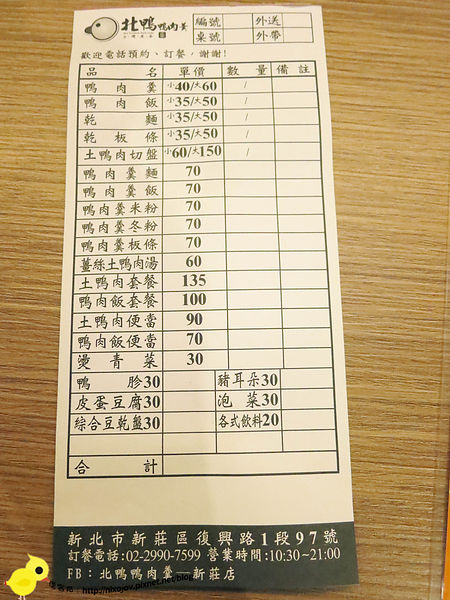 北鴨鴨肉羹
編號 外送
桌號 外帶
歡迎電話預約、訂餐，謝謝!
品名 單價 數量 備註
鴨肉羹 小40/大60 /
鴨肉飯 小35/大50 /
乾麵 小35/大50 /
乾板條 小35/大50 /
土鴨肉切盤 小60/大150 /
鴨肉羹麵 70
鴨肉羹飯 70
鴨肉羹米粉 70
鴨肉羹冬粉 70
鴨肉羹板條 70
薑絲土鴨肉湯 60
土鴨肉套餐 135
鴨肉飯套餐 100
土鴨肉便當 90
鴨肉飯便當 70
燙青菜 30
鴨胗30 豬耳朵30
皮蛋豆腐30 泡菜30
綜合豆乾盤30 各式飲料20
合計
新北市新莊區復興路1段97號
訂餐電話:02-2990-7599 營業時間:10:30~21:00
FB：北鴨鴨肉羹—新莊店
http://nixojov.pixnet.net/blog